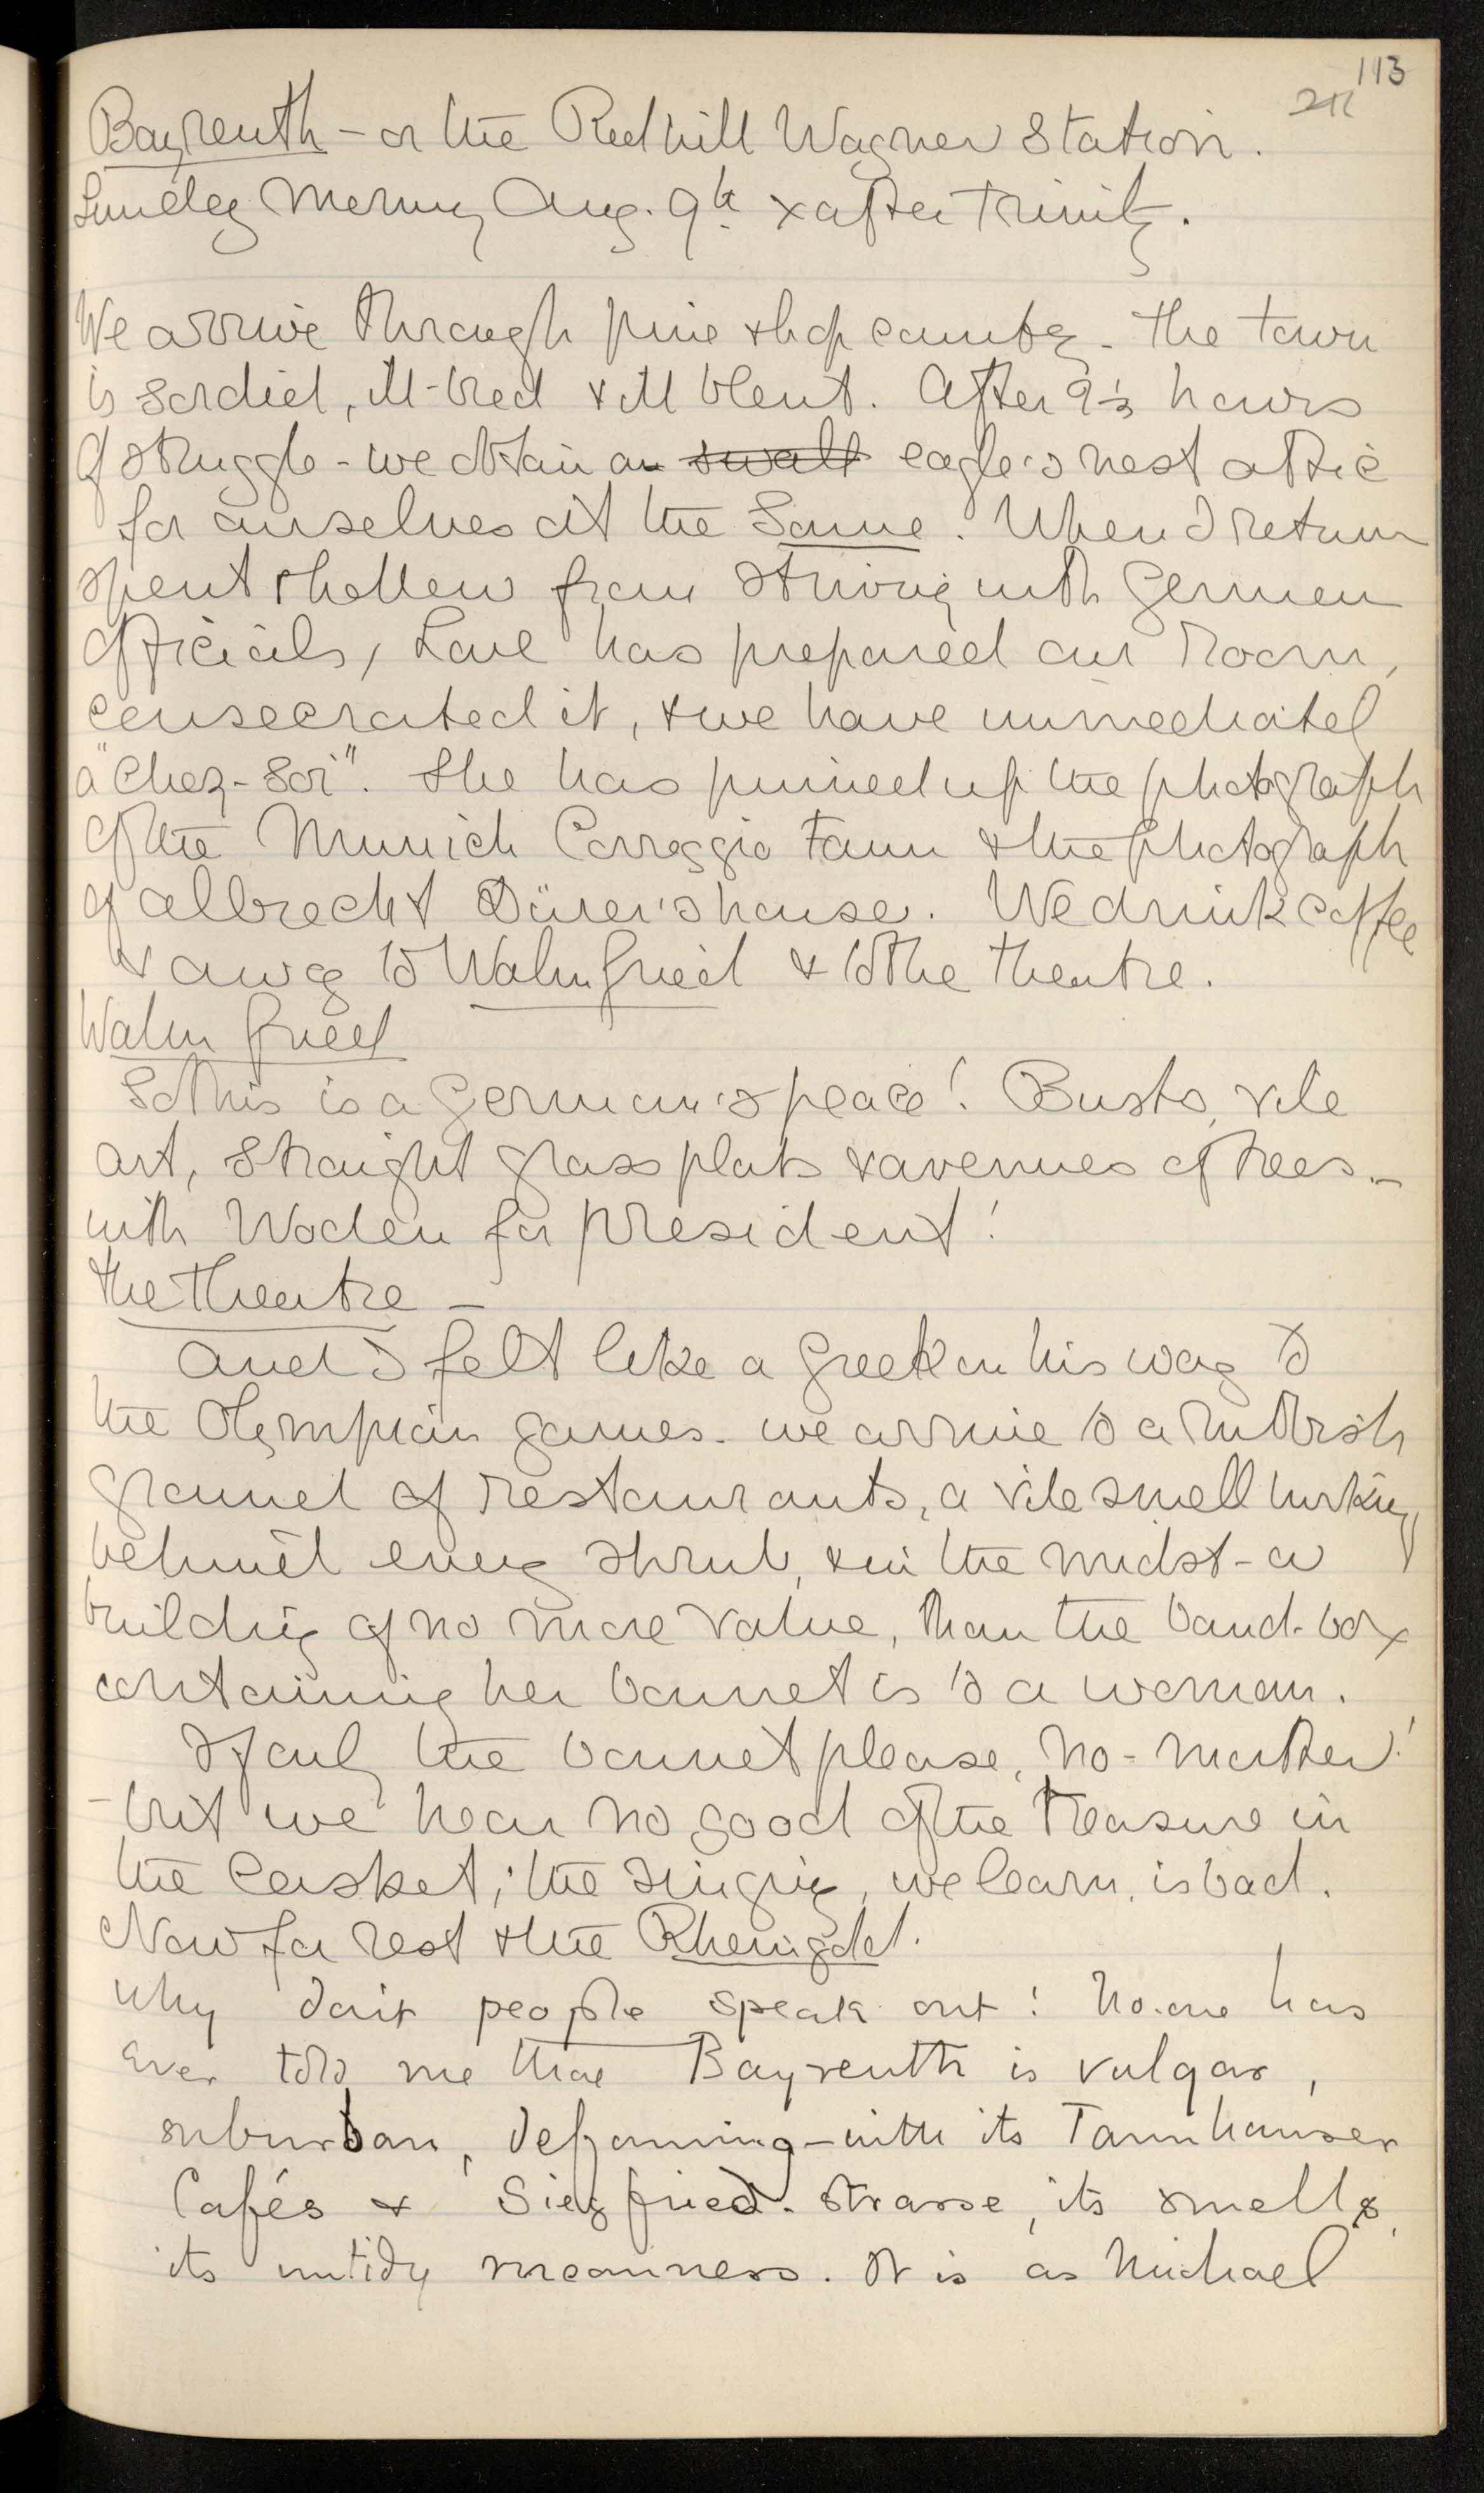 113
211
Bayreuth - or the Redhill Wagner Station.
Sunday Morning Aug. 9th x after Trinity.
We arrive through pine & hop country - the town
is sordid, ill-bred & ill blent. After 2½ hours
of struggle - we obtain an small eagle's nest attic
for ourselves at the Sonne. When I return
spent & hollow from striving with German
officials, Love has prepared our room,
consecrated it, & we have immediately
a "Chez-Soi". She has pinned up the photograph
of the Munich Correggio Faun & the photograph
of Albrecht Dürer's house. We drink coffee
& away to Wahnfried & to the theatre.
Wahn fried
So this is a German's peace! Busts, vile
art, straight grass plats & avenues of trees -
with Woden for president!
The Theatre -
And I felt like a Greek on his way to
the Olympian games. we arrive to a rubbish
ground of restaurants, a vile smell lurking
behind every shrub, & in the midst - a
building of no more value, than the band-box
containing her bonnet is to a woman.
If only the bonnet please, no-matter!
- but we hear no good of the treasure in
the casket; the singing, we learn, is bad.
Now for rest & the Rheingold.
Why don't people speak out! No. one has
ever told me that Bayreuth is vulgar,
suburban, deforming - with its Tannhauser
Cafés & Siegfried. strasse, its smells,
its untidy meanness. It is as Michael